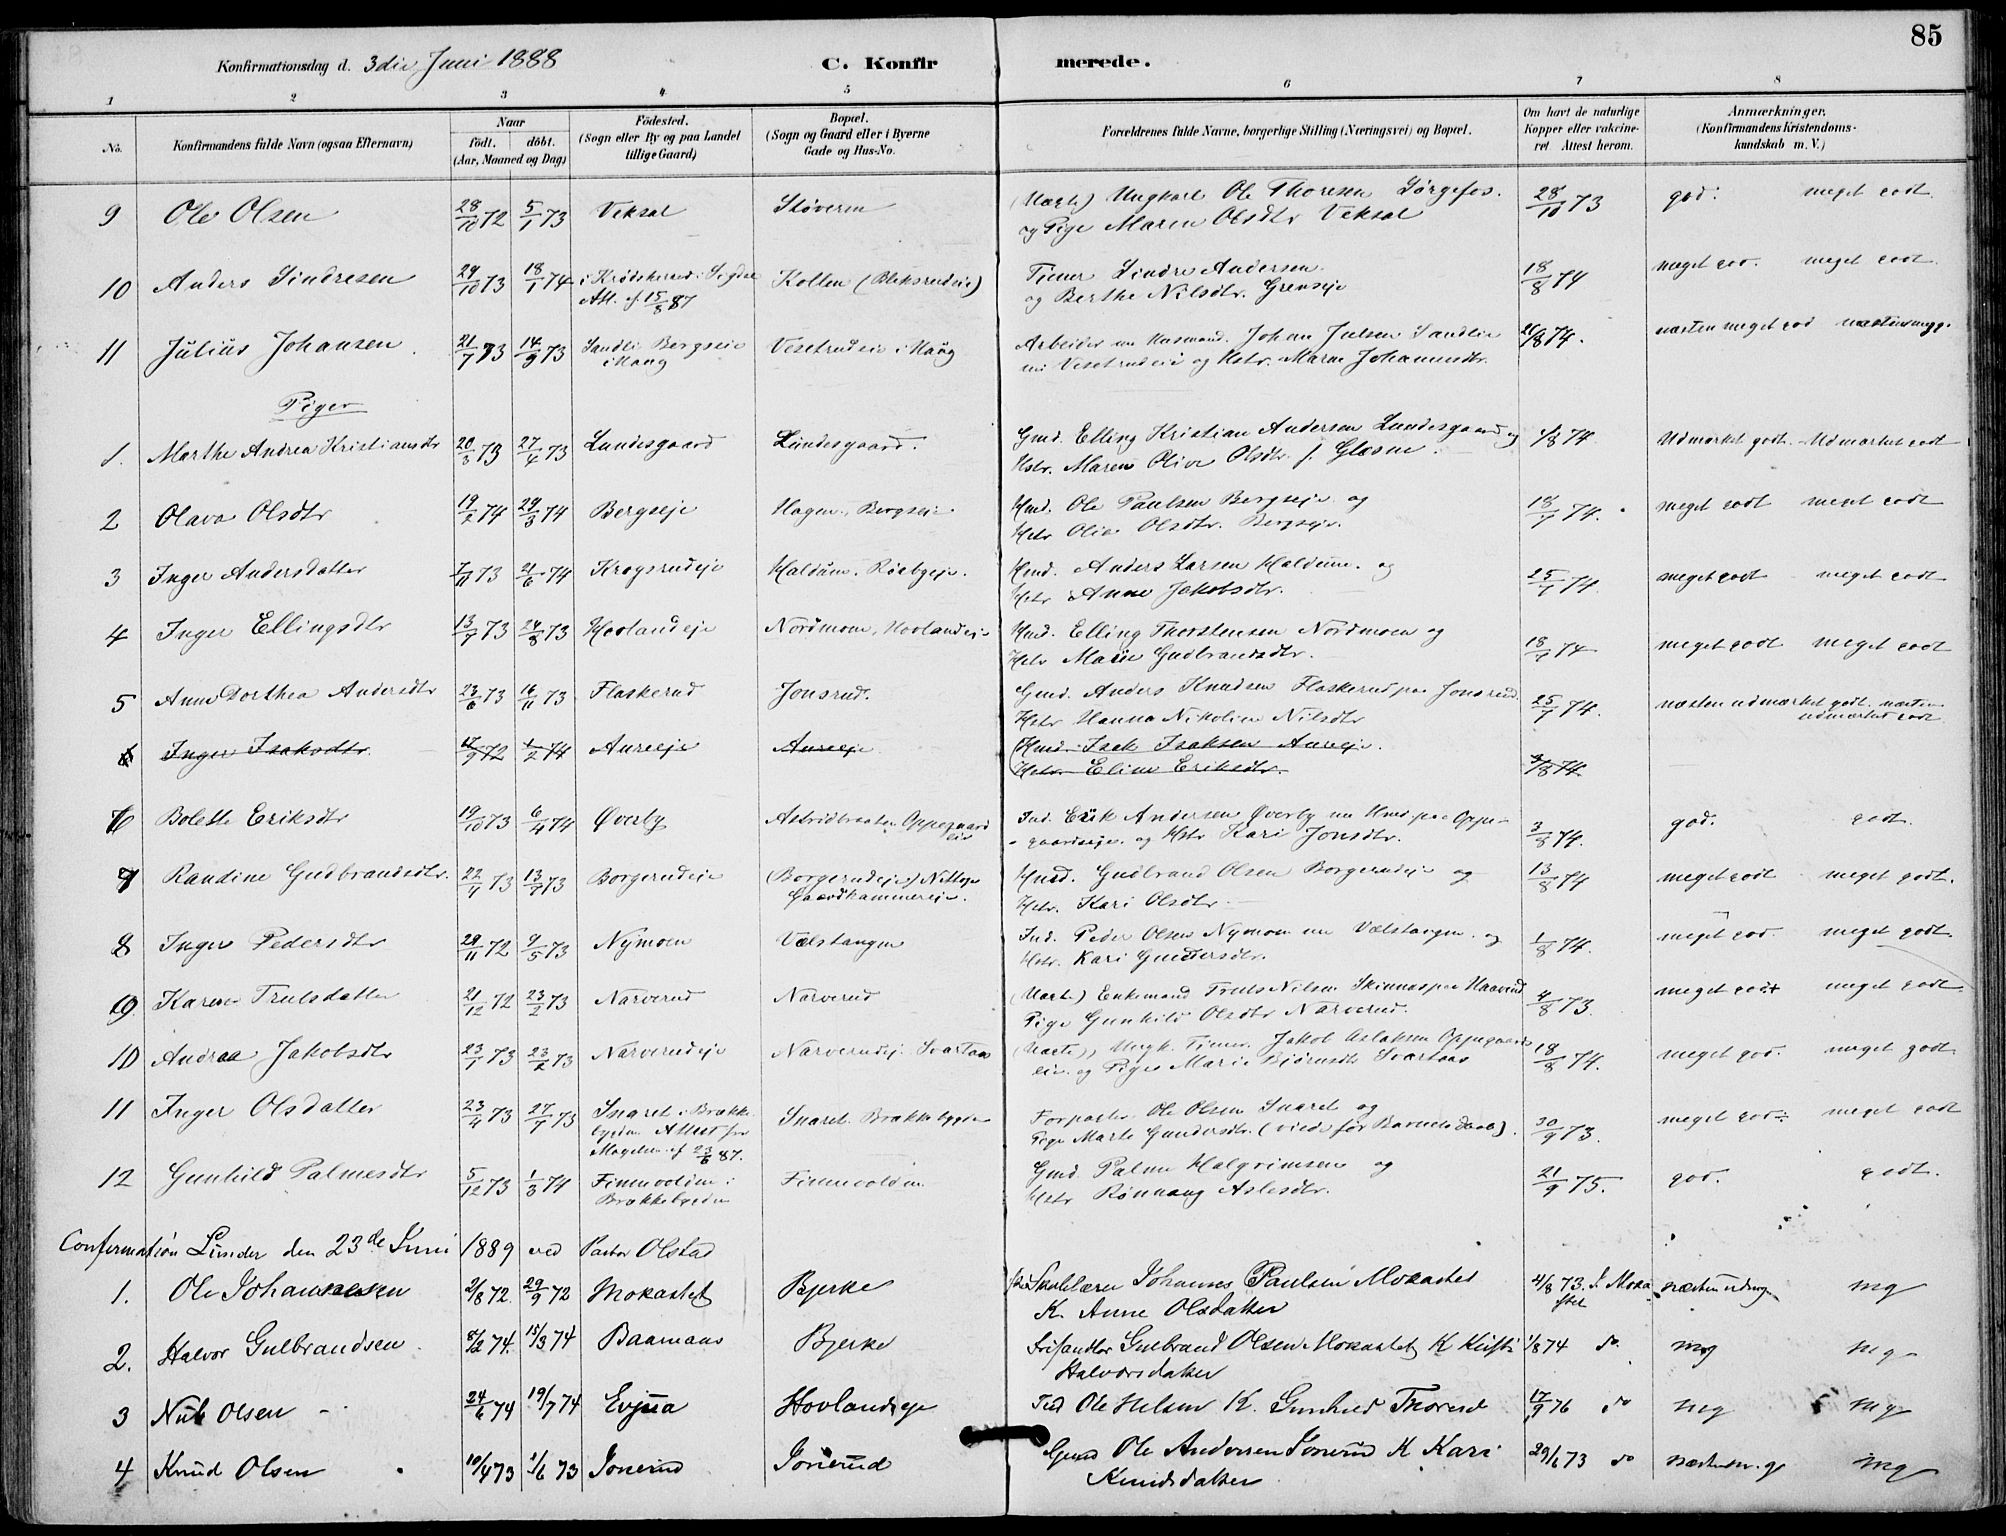 85
Konfirmationsdag d. 3die Juni 1888 C. Konfirmerede.
1 2 3 4 5 6 7 8
No. Konfirmandens fulde Navn (ogsaa Efternavn) Naar födt. döbt. (Aar, Maaned og Dag) Födested. (Sogn eller By og paa Landet tillige Gaard) Bopæl. (Sogn og Gaard eller i Byerne Gade og Hus-No. Forældrenes fulde Navne, borgerlige Stilling (Næringsvei) og Bopæl. Om havt de naturlige Kopper eller vakcineret. Attest herom. Anmærkninger. (Konfirmandens Kristendomskundskab m. V.)
9 Ole Olsen 28/10 72 5/1 73 Veksal Støveren (Uægte) Ungkarl Ole Thoresen Sørgefos. 28/10 73 god: meget godt.
og Pige Maren Olsdtr Veksal
10 Anders Sindresen 29/10 73 18/1 74 i Krødsherred i Sigdal Kollen (Bleksrudeie) Timer Sindre Andersen 18/8 74 meget god. meget godt.
Att. af 15/8 87 og Berthe Nilsdtr. Grenseie
11 Julius Johansen 21/7 73 14/9 73 Sandli Bergseie Vesetrudeie i Haug Arbeider nu Husmand. Johan Julsen Sandlie 26/8 74. næsten meget god næsten meg g.
i Haug nu Vesetrudeie og Kstr. Maren Johannesdtr.
Piger
1. Marthe Andrea Kristiansdtr 20/3 73 27/4 73 Lundesgaard Lundesgaard. Gmd. Elling Kristian Andersen Lundesgaard og 1/8 74 Udmærket godt. Udmærket godt
Kstr. Maren Olive Olsdtr. f. Glæsne.
2 Olava Olsdtr 19/2 74 29/3 74 Bergseje Hagen. Bergseie Hmd. Ole Paulsen Bergseje og 18/7 74. meget godt meget godt
Hstr Olia Olsdtr. Bergseje.
3 Inger Andersdatter 7/11 73 21/6 74 Krogsrudeje Haldum. Røebgeje. Hmd. Anders Larsen Haldum. og 25/7 74. meget godt meget godt
Hstr Anne Jakobsdtr.
4 Inger Ellingsdtr 13/7 73 24/8 73 Hovlandeje Nordmoen, Hovlandeje Hmd. Elling Thorstensen Nordmoen og 18/7 74 meget godt meget godt
Hstr Marie Gudbrandsdtr.
5 Anne Dorthea Andersdtr 23/6 73 16/11 73 Flaskerud Jonsrud. Gmd. Anders Knudsen Flaskerud paa Jonsrud. 25/7 74. næsten udmærket godt. næsten
Hstr Hanna Nikoline Nilsdtr udmærket godt
6 Inger Isaksdtr. 17/9 72 1/2 74 Aureeje Aureeje Hmd. Isak Isaksen Aureeje.
Hstr. Eline Eriksdtr. 3/8 74.
6 Bolette Eriksdtr 19/10 73 6/4 74 Øverby Astridbraaten Oppegaard Ind. Erik Andersen Øverby nu Hmd paa Oppe- 3/8 74. god. godt.
eie gaardseje. og Hstr Kari Jonsdtr.
7 Randine Gudbrandsdtr. 22/4 73 13/7 73 Borgerudeje (Borgerudeje) Hmd. Gudbrand Olsen Borgerudeje og 13/8 74 meget godt meget godt.
Hstr. Kari Olsdtr
8 Inger Pedersdtr 29/11 72 9/5 73 Nymoen Vælstangen Ind. Peder Olsen Nymoen nu Vælstangen. og 1/8 74. meget god. meget godt.
Hstr. Kari Gundersdtr.
9 Karen Trulsdatter 21/12 72 23/2 73 Narverud Narverud (Uægte) Enkemand Truls Nilsen Skinnes paa Haverud 4/8 73. meget godt meget godt.
Pige Gunhild Olsdtr Narverud.
10 Andrea Jakobsdtr 23/1 73 23/2 73 Narverudeje Narverudej. Svartaas (Uægte) Ungk. Timer. Jakob Aslaksen Oppegaards 18/8 74. meget god. meget godt
eie og Pige Marie Bjørnsdtr Svartaas
11 Inger Olsdatter 23/4 73 27/7 73 Snaret i Brække- Snaret. Brækkebygden Forpagter Ole Olsen Snaret og 30/9 73. meget god: meget godt
bygden Attest fra Pige Marte Gundersdtr. (viede før Barnets Daab).
af 23/6 87.
12 Gunhild Palmesdtr 5/12 73 1/3 74 Finnevolden i Finnevolden Gmd. Palme Halgrimsen og 21/9 75. god. godt.
Brækkebygden Hstr Rønnaug Aslesdtr.
Confirmation Lunder den 23de Juni 1889 ved Pastor Olstad
1. Ole Johannesen 2/8 72. 29/9 72 Mokastet Bjerke Skolelærer Johannes Paulsen Mokastet 4/8 73. næsten udmg. mg
K. Anne Olsdatter
2. Halvor Gulbrandsen 8/2 74. 15/3 74 Baamans Bjerke Gulbrand Olsen Mokastet K Kirsti 1/8 74 do mg mg
Halvorsdatter
3 Nub Olsen 24/6 74 19/7 74 Evjua Hovlandseje Ind Ole Nelsen K. Gunhild Thoresd 17/9 76 do meg mg
4 Knud Olsen 10/4 73 1/6 73 Jonerud Jonerud Gmd Ole Andersen Jonerud K Kari 29/6 73 do næsten m.g mg
Knudsdatter